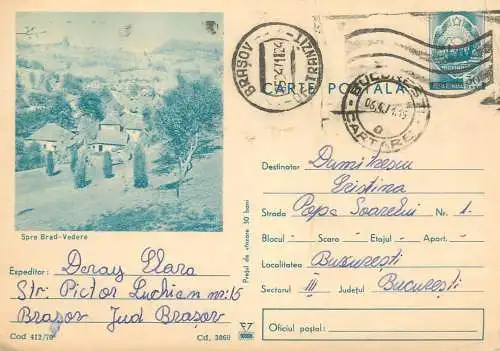 BRAȘOV
TRANZIT
CARTE POSTALA
BUCUREȘTI
CARTARE
Spre Brad-Vedere
Expeditor: Deray Clara
Str. Pictor Luchian nr. 15
Brașov Jud Brașov
Cod 412/70
Cd. 3060
Prețul de vînzare 30 bani
Destinatar Dumitrescu
Cristina
Strada Popa Soarelui Nr. 1.
Blocul - Scara - Etajul - Apart. -
Localitatea București
Sectorul III Județul București
Oficiul poștal: